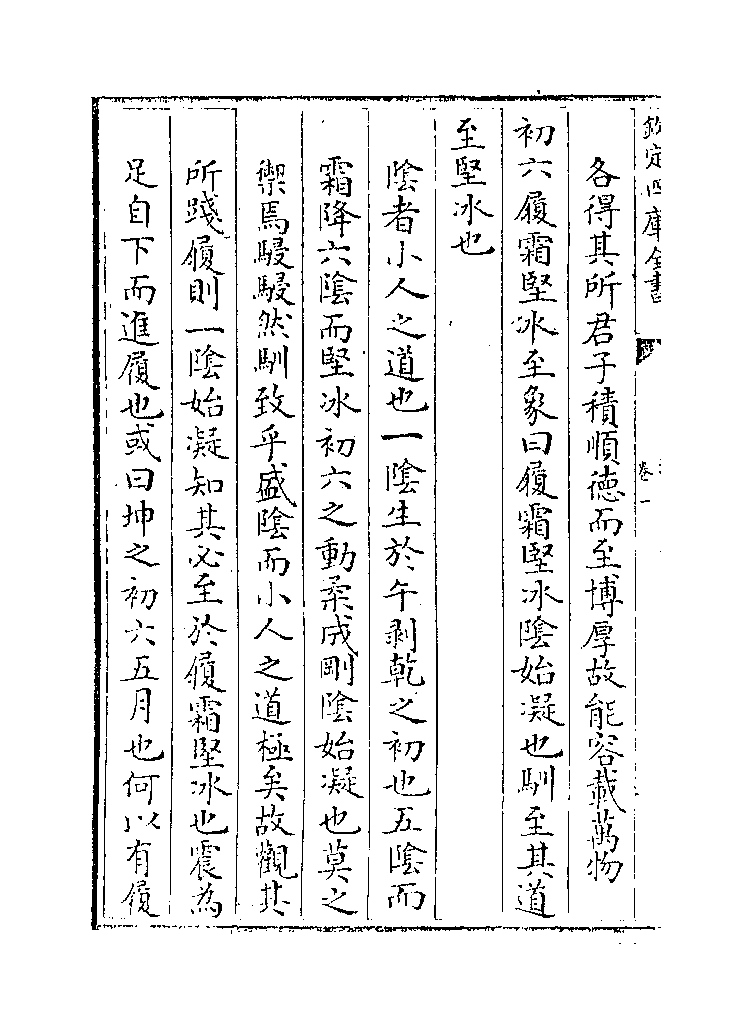 欽定四庫全書
卷一
各得其所君子積順徳而至博厚故能容載萬物
初六履霜堅冰至象曰履霜堅冰陰始凝也馴至其道
至堅冰也
陰者小人之道也一陰生於午剥乾之初也五陰而
霜降六陰而堅冰初六之動柔成剛陰始凝也莫之
禦焉駸駸然馴致乎盛陰而小人之道極矣故觀其
所踐履則一陰始凝知其必至於履霜堅冰也震為
足自下而進履也或曰坤之初六五月也何以有履